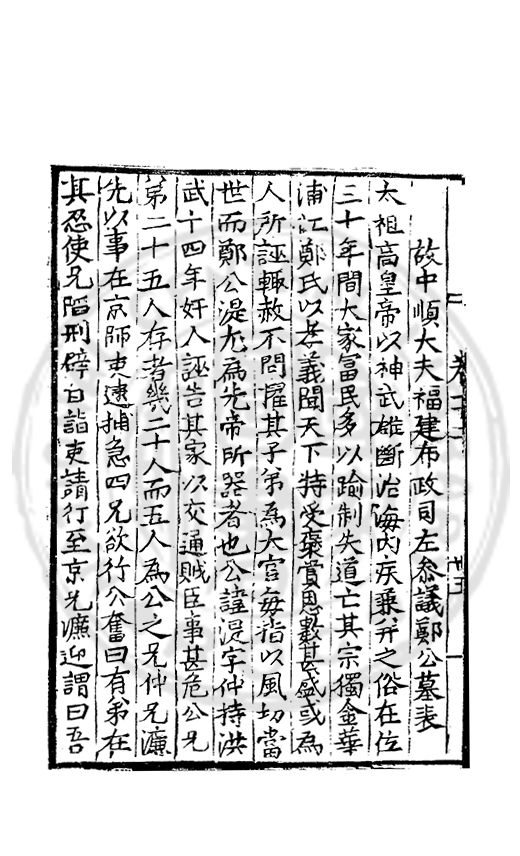 故中順大夫福建布政司左參議鄭公墓表
太祖高皇帝以神武雄斷治海內疾兼并之俗在位
三十年間大家富民多以踰制失道亡其宗獨金華
浦江鄭氏以孝義聞天下特受褒賞恩數甚盛或為
人所誣輒赦不問擢其子弟為大官每指以風切當
世而鄭公湜尤為先帝所器者也公諱湜字仲持洪
武十四年奸人誣告其家以交通賊臣事甚危公兄
弟二十五人存者幾二十人而五人為公之兄仲兄濂
先以事在京師吏逮捕急四兄欲行公奮曰有弟在
其忍使兄陷刑辟自詣吏請行至京兄濂迎謂曰吾